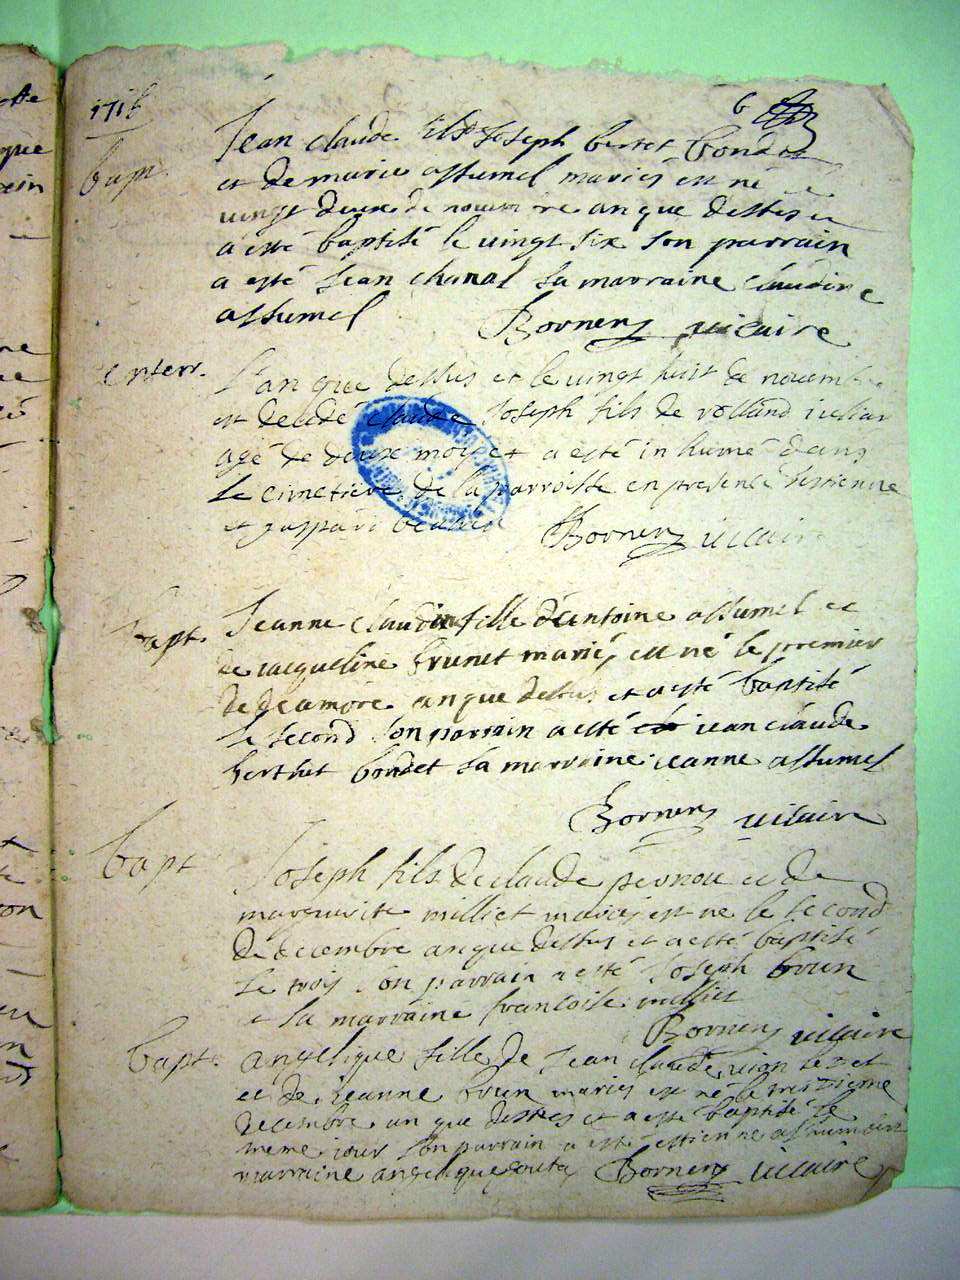 1716
6
bapt.
Jean claude fils de Joseph bertet bondet
et de marie assumel mariés est né le
vingt deux de novembre an que dessus et
a esté baptisé le vingt six son parrain
a esté Jean chanal sa marraine claudine
assumel Bornens vicaire
enterr.
L'an que dessus et le vingt huit de novembre
est decedé claude Joseph fils de rolland
agé de deux moys et a esté inhumé dans
le cimetiere de la parroisse en presence d'estienne
et gaspard Bornens vicaire
bapt.
Jeanne claudine fille d'antoine assumel et
de jacqueline brunet mariés est né le premier
de decembre an que dessus et a esté baptisé
le second son parrain a esté jean claude
berthet bondet sa marraine jeanne assumel
Bornens vicaire
bapt
Joseph fils de claude pernou et de
marguerite milliet mariés est né le second
de decembre an que dessus et a esté baptisé
le trois son parrain a esté Joseph brun
et sa marraine francoise milliet
Bornens vicaire
bapt.
angelique fille de Jean claude
et de jeanne brun mariés est né le treizieme
decembre an que dessus et a esté baptisé le
meme jour son parrain a esté estienne
marraine angelique Bornens vicaire